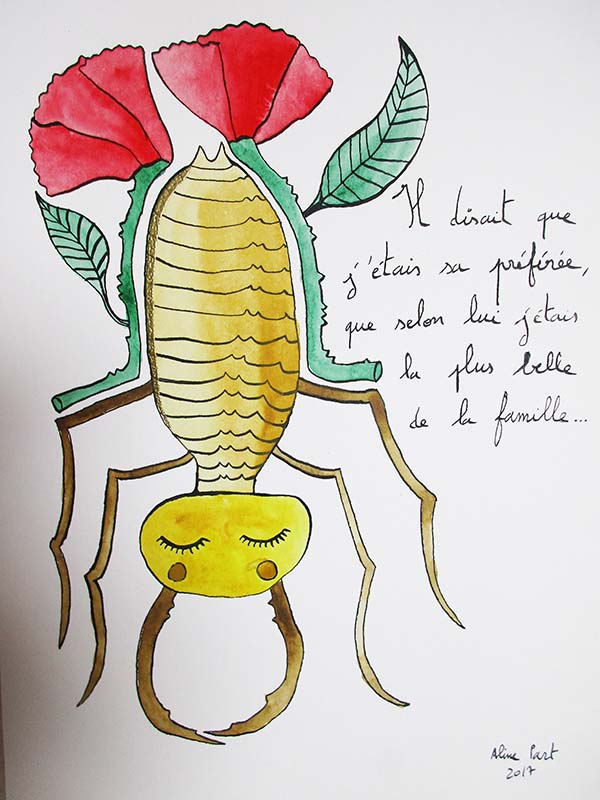 Il disait que
j'étais sa préférée,
que selon lui j'étais
la plus belle
de la famille...
Aline Part
2017